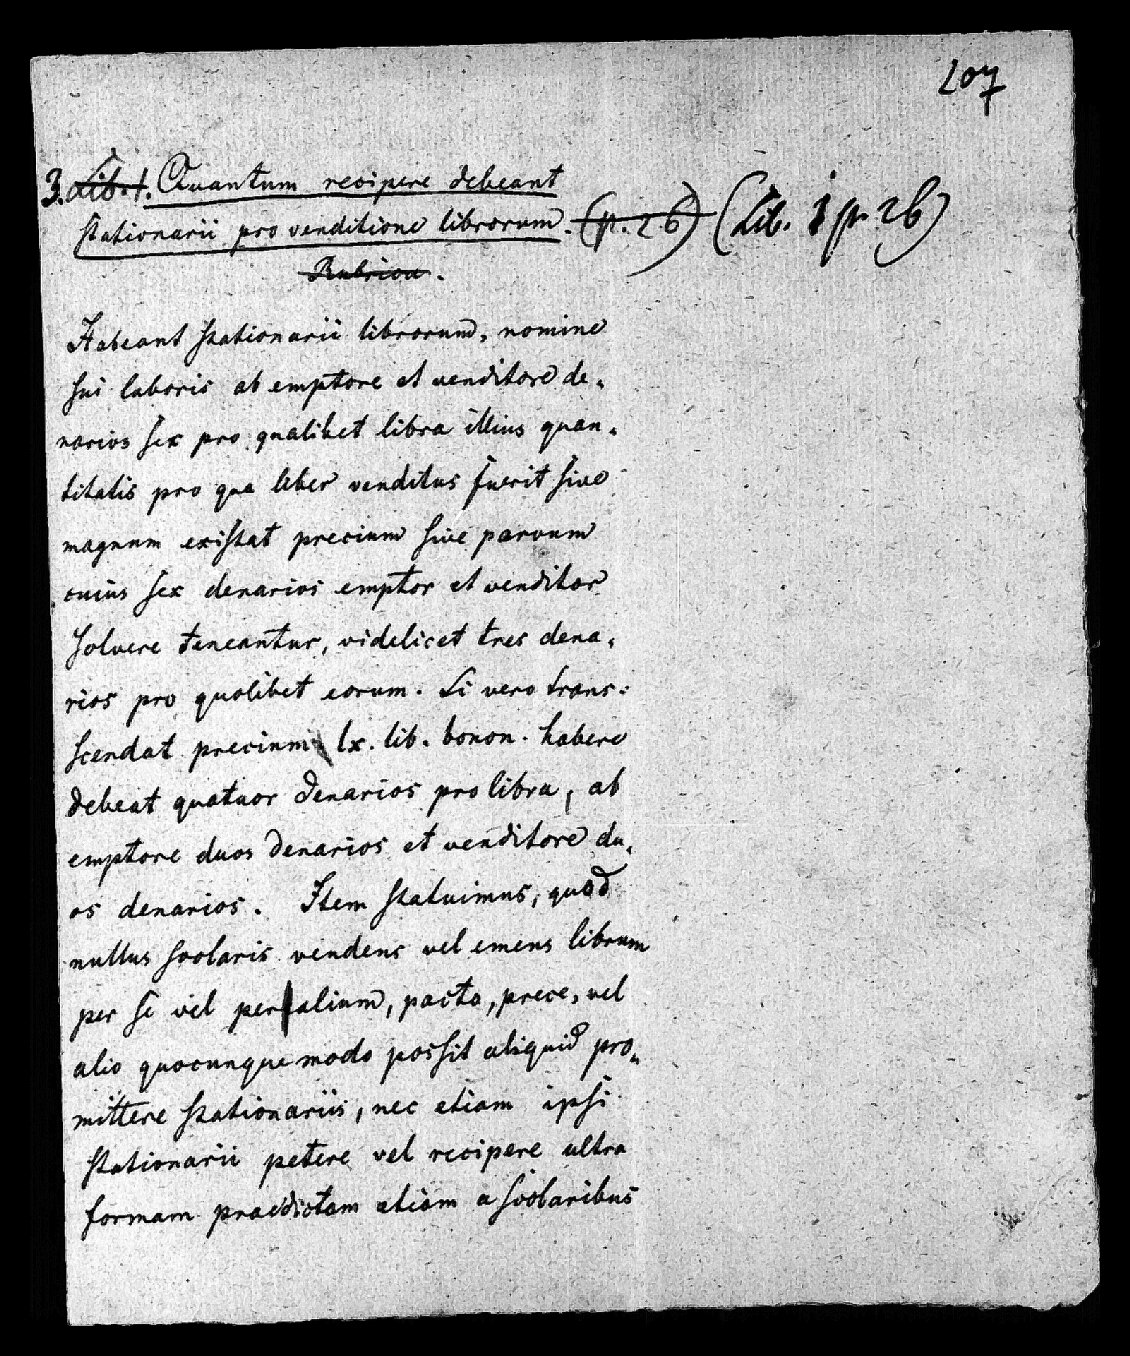 207
3. Lib. 1. Quantum recipere debeant
stationarii pro venditione librorum. (p. 26) (Lib. 1 p. 26)
Rubrica.
Habeant stationarii librorum, nomine
sui laboris ab emptore et venditore de-
narios sex pro qualibet libra illius quan-
titatis pro qua liber venditus fuerit sive
magnum existat precium sive parvum
cuius sex denarios emptor et venditor
solvere teneantur, videlicet tres dena-
rios pro quolibet eorum. Si vero trans-
scendat precium lx. lib. bonon. habere
debeat quatuor denarios pro libra, ab
emptore duos denarios et venditore du-
os denarios. Item statuimus, quod
nullus scolaris vendens vel emens librum
per se vel per alium, pacto, prece, vel
alio quocunque modo possit aliquid pro-
mittere stationariis, nec etiam ipsi
stationarii petere vel recipere ultra
formam praedictam etiam a scolaribus